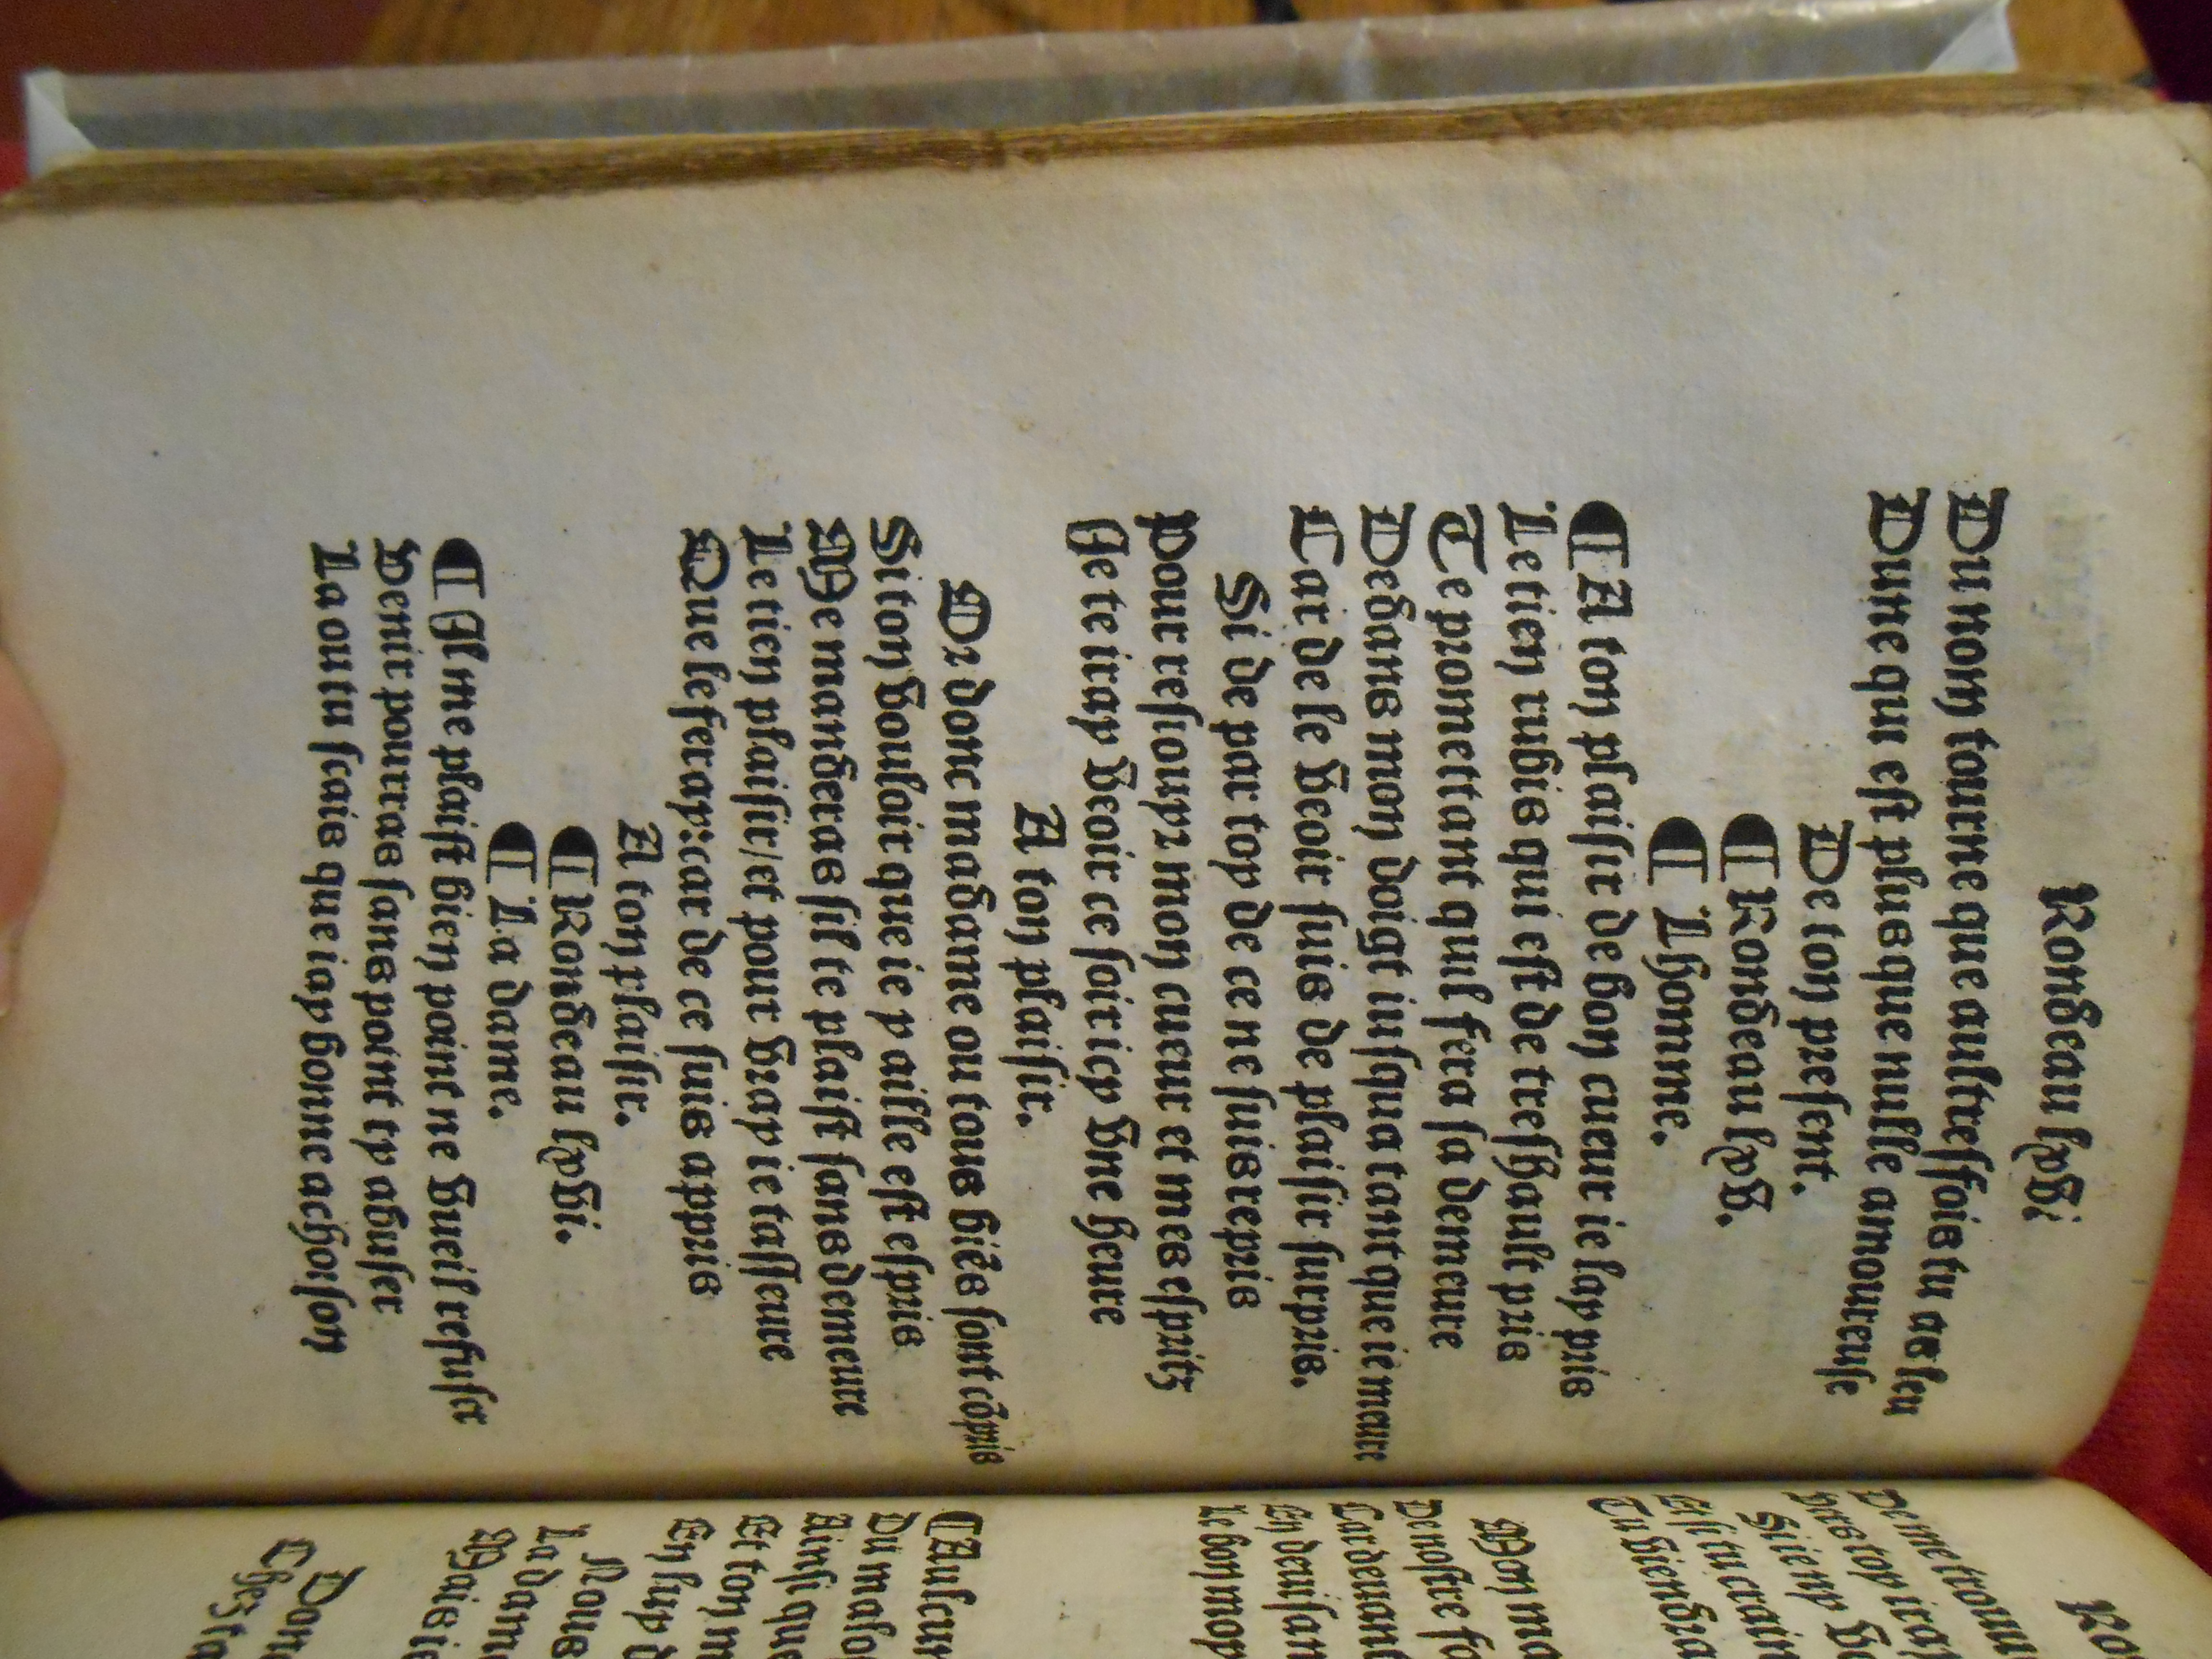 Rondeau lxvi
Du nom tourne que aultresfois tu as leu
Dune qui est plus que nulle amoureuse
De ton present.
¶ Rondeau lxv.
¶ Lhomme.
¶ A ton plaisir de bon cueur ie lay pris
Le tien rubis qui est de treshault pris
Te promettant quil fera sa demeure
Dedans mon doigt iusqua tant que ie meure
Car de le veoir suis de plaisir surpris.
Si de par toy de ce ne suis repris
Pour resiouyr mon cueur et mes espritz
Je te iray veoir ce soir icy vne heure
A ton plaisir.
Or donc madame ou tous biēs sont cōpris
Si ton vouloir que ie y aille est espris
Me manderas sil te plaist sans demeure
Le tien plaisir/et pour vray ie tasseure
Que le feray:car de ce suis appris
A ton plaisir.
¶ Rondeau lxvi.
¶ La dame.
¶ Il me plaist bien point ne vueil refuser
Venir pourras sans point ty abuser
La ou tu scais que iay bonne achoison
De me trouu
Pas toy iray
Si e my
Et si tu crain
Tu viendra
Mon mo
De nostre fa
Car demand
En deuisan
Le bon moy
Du malo
Ainsi que
Et ton m
En luy d
Nous
La dam
Mais ie
Don
Chez ta